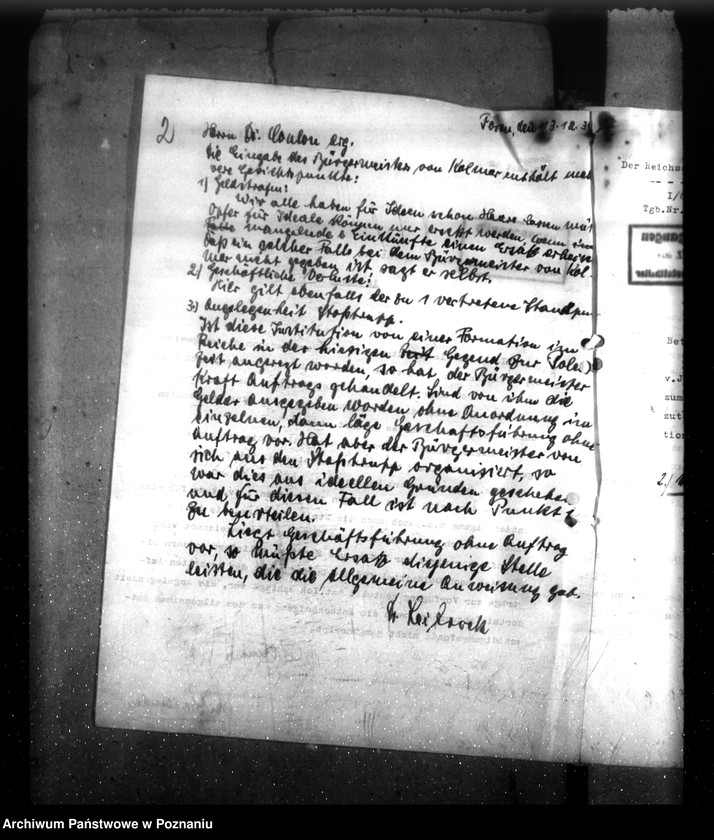 2
Posen, den 13.12.3
Herrn Dr. Coulon
Die Eingabe des Bürgermeisters von Kolmar enthält meh
rere Gesichtspunkte:
1) Geldstrafen:
Wir alle haben für Ideen schon Haare lassen müs
Opfer für Ideale können nur ersetzt werden, wenn im
Falle mangelnde Einkünfte einen Ersatz erheisc
Daß ein solcher Falle bei dem Bürgermeister von Kol-
mar nicht gegeben ist, sagt er selbst.
2) Geschäftliche Verluste:
Hier gilt ebenfalls der zu 1 vertretene Standpun
3) Angelegenheit Stoßtrupp.
Ist diese Institution von einer Formation im
Reiche in der hiesigen Gegend zur Polen
zeit angeregt worden, so hat der Bürgermeister
kraft Auftrags gehandelt. Sind von ihm die
Gelder ausgegeben worden ohne Anordnung im
einzelnen, dann läge Geschäftsführung ohne
Auftrag vor. Hat aber der Bürgermeister von
sich aus den Stoßtrupp organisiert, so
war dies aus ideellen Gründen geschehen
und für diesen Fall ist nach Punkt 1
zu beurteilen.
Liegt Geschäftsführung ohne Auftrag
vor, so müßte Ersatz diejenige Stelle
leisten, die die allgemeine Anweisung gab.
Der Reichs
I/
Tgb.Nr.
Bet
v.J
zum
zut
tion
2./
Archiwum Państwowe w Poznaniu